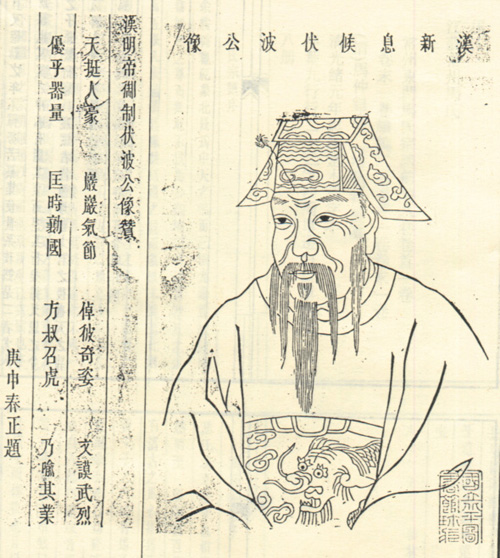 漢新息候伏波公像
漢明帝御制伏波公像贊
天挺人豪 巖巖氣節 倬彼奇姿 文謨武烈
優乎器量 匡時勳國 方叔召虎 乃喻其業
庚申春正題
國立北平圖書館珍藏